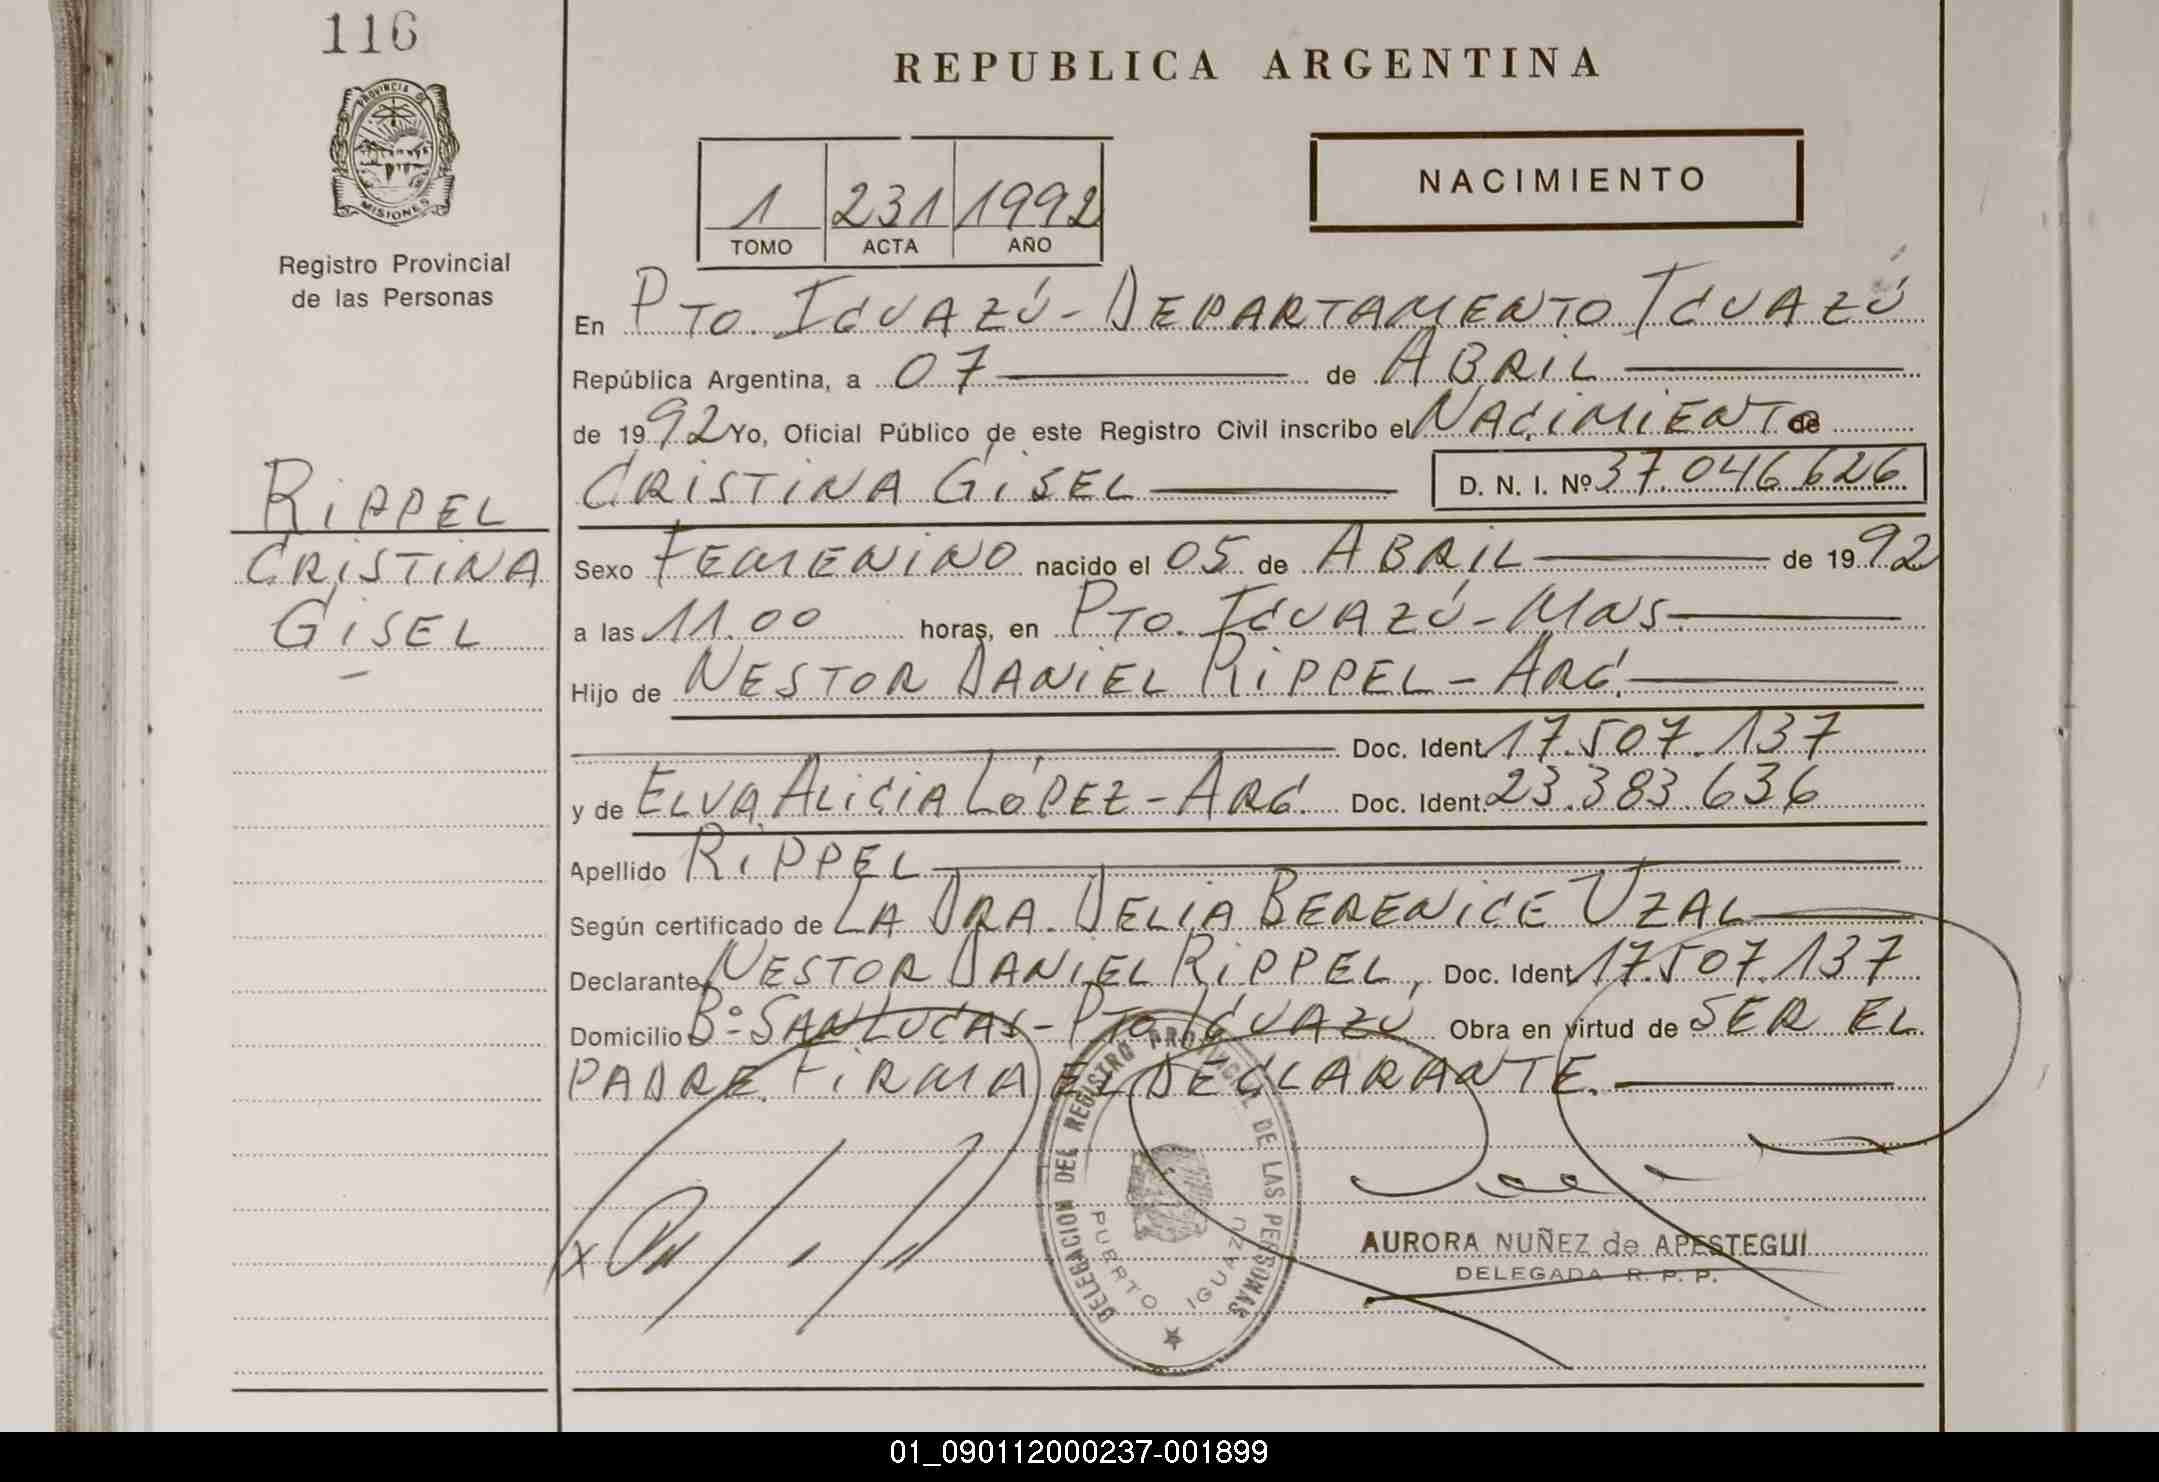 116
REPUBLICA ARGENTINA
PROVINCIA DE
MISIONES
Registro Provincial
de las Personas
1 231 1992
TOMO ACTA AÑO
NACIMIENTO
En PTO. IGUAZÚ - DEPARTAMENTO IGUAZÚ
República Argentina, a 07 de ABRIL
de 1992 Yo, Oficial Público de este Registro Civil inscribo el NACIMIENTO de
CRISTINA GISEL D. N. I. Nº 37.046.626
RIPPEL
CRISTINA
GISEL
Sexo FEMENINO nacido el 05 de ABRIL de 1992
a las 11.00 horas, en PTO. IGUAZÚ - MNS.
Hijo de NESTOR DANIEL RIPPEL - ARG.
Doc. Ident. 17.507.137
y de ELVA ALICIA LÓPEZ - ARG. Doc. Ident. 23.383.636
Apellido RIPPEL
Según certificado de LA DRA. DELIA BERENICE UZAL
Declarante NESTOR DANIEL RIPPEL, Doc. Ident. 17.507.137
Domicilio Bº SAN LUCAS - PTO. IGUAZÚ Obra en virtud de SER EL
PADRE. FIRMA EL DECLARANTE.
DELEGACION DEL REGISTRO PROVINCIAL DE LAS PERSONAS
PUERTO IGUAZU
AURORA NUÑEZ de APESTEGUI
DELEGADA R. P. P.
01_090112000237-001899